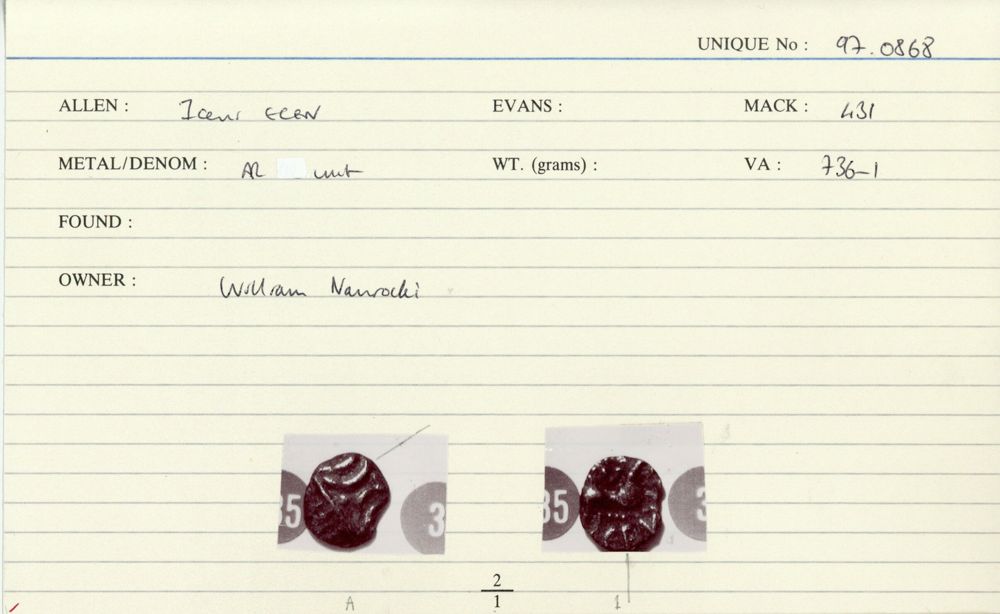 UNIQUE No : 97.0868
ALLEN : Iceni ECEN EVANS : MACK : 431
METAL/DENOM : AR unit WT. (grams) : VA : 736-1
FOUND :
OWNER : William Nawrocki
35 3 35 3
2
A 1 1